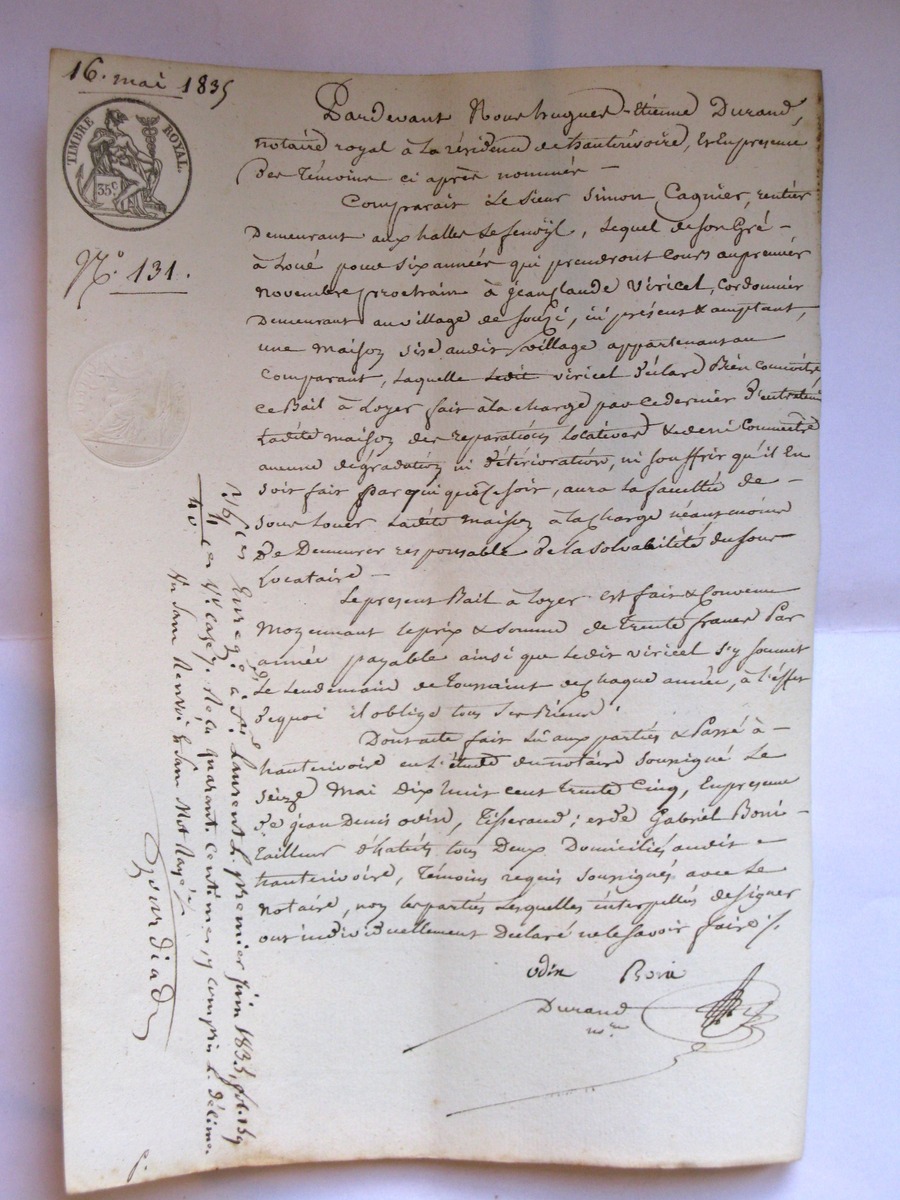 16. mai 1835
TIMBRE ROYAL.
35c
N.° 131.
Pardevant Nous hugues-Etienne Durand,
notaire royal à la résidence de hauterivoire, et En presence
des Témoins ci après nommés —
Comparait Le Sieur Simon Cagnier, rentier
Demeurant aux halles Lefenoÿl, Lequel de son Gré —
à Loué pour Six années qui prendront Cours au premier
novembre prochain à jean Claude Viricel, Cordonnier
Demeurant au village de Souzi, ici présent & acceptant,
une maison Sise audit village appartenant au
Comparant, Laquelle Ledit viricel déclare Bien Connoitre
Ce Bail à Loyer fait à la charge par Ce dernier d'entretenir
Ladite maison des reparations Locatives & de ni Commettre
aucune dégradation ni détérioration, ni Souffrir qu'il En
Soit fait par qui que Ce Soit, aura La faculté de —
Sous Louer Ladite maison à La charge néanmoins
de Demeurer responsable de la Solvabilité du Sous
Locataire —
Le présent Bail à Loyer est fait & Convenu
Moyennant le prix & Somme de trente francs Par
année payable ainsi que Ledit viricel S'y Soumet
Le Lendemain de toussaint de chaque année, à l'effet
de quoi il oblige tous Ses Biens.
Dont acte fait Lu aux parties & Passé à —
hauterivoire en L'étude du notaire Soussigné Le
Seize Mai Dix huit cent trente Cinq, En presence
de jean Denis odin, Tisserand; et de Gabriel Boni —
tailleur d'habits tous Deux Domiciliés audit —
hauterivoire, Témoins requis Soussignés avec Le
notaire, non les parties Lesquelles interpellés de Signer
ont individuellement Déclaré ne le Savoir faire ./.
odin Boni
Durand
nore
Enregé. à St. Laurent L. premier juin 1835, fol. 159
ro. Ces 4 &
quarante Centimes, y compris L. décime.
Un Sans Renvoi & Sans Mot Rayé.